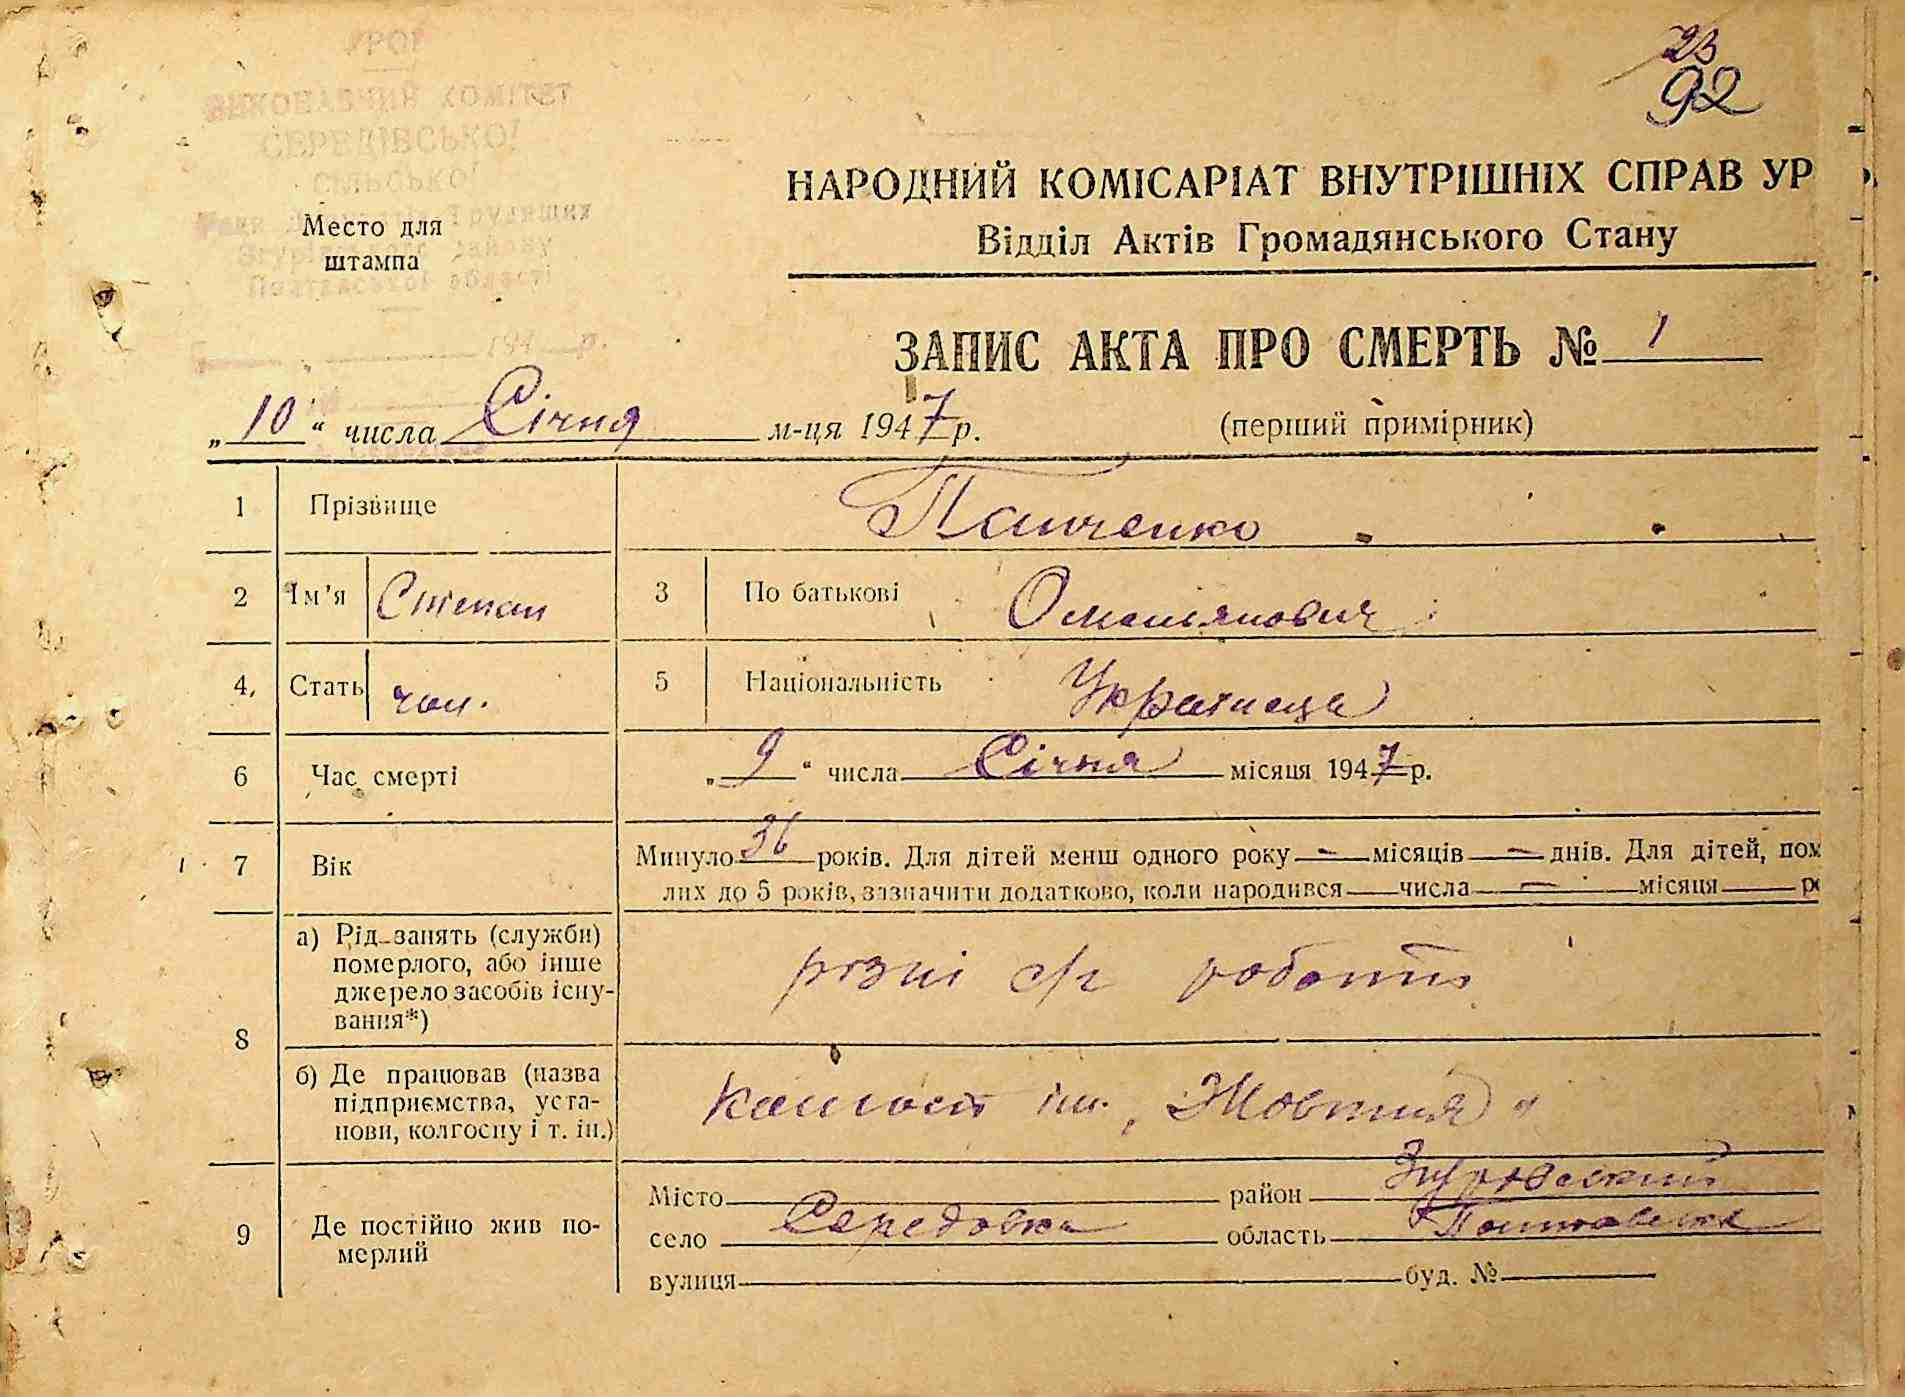 23
92
УРСР
ВИКОНАВЧИЙ КОМІТЕТ
СЕРЕДІВСЬКОЇ
СІЛЬСЬКОЇ
Ради Депутатів Трудящих
Згурівського району
Полтавської області
194 р.
Место для
штампа
НАРОДНИЙ КОМІСАРІАТ ВНУТРІШНІХ СПРАВ УР
Відділ Актів Громадянського Стану
ЗАПИС АКТА ПРО СМЕРТЬ № 1
„10“ числа Січня м-ця 1947 р.
(перший примірник)
1 Прізвище Панченко
2 Ім’я Степан 3 По батькові Омельянович
4, Стать чол. 5 Національність Українець
6 Час смерті „9“ числа Січня місяця 1947 р.
7 Вік Минуло 36 років. Для дітей менш одного року — місяців — днів. Для дітей, пом
лих до 5 років, зазначити додатково, коли народився числа — місяця р
8 а) Рід занять (служби)
померлого, або інше
джерело засобів існу-
вання*)
різні с/г роботи
б) Де працював (назва
підприємства, уста-
нови, колгоспу і т. ін.)
Колгосп ім. „Жовтня“
9 Де постійно жив по-
мерлий
Місто район Згуровский
село Середовка область Полтавська
вулиця буд. №